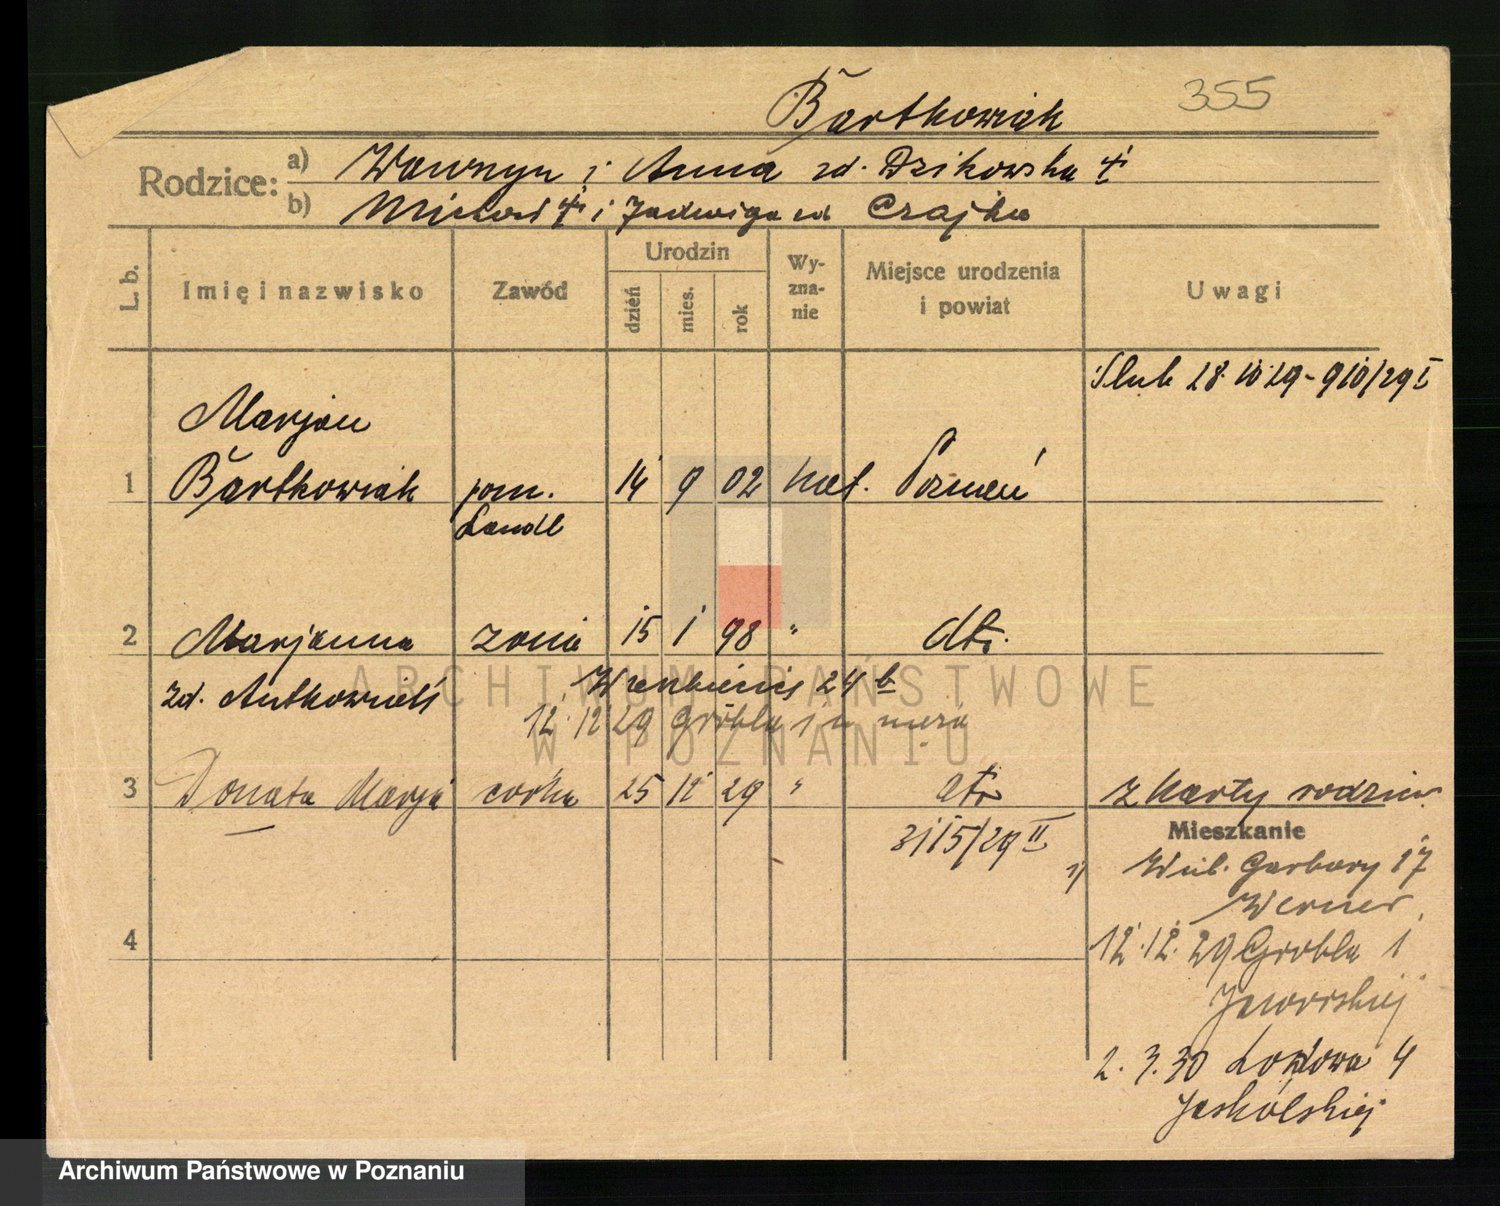 Bartkowiak 355
Rodzice: a) Wawrzyn i Anna zd. Dzikowska
b) Michał i Jadwiga zd Czajka
L. b. Imię i nazwisko Zawód Urodzin dzień mies. rok Wyznanie Miejsce urodzenia i powiat Uwagi
Ślub 28.10.29 - 910/29 I
Marjan
1 Bartkowiak pom. 14 9 02 kat. Poznań
handl
2 Marjanna żona 15 1 98 " dto.
zd. Antkowiak 24 b
12.12.29 Grobla 1 u męża
3 Donata Marja córka 25 12 29 " dto z karty rodzin.
3115/29 II
Mieszkanie
1) Garbary 17
Werner
4
12.12.29 Grobla 1
Jaworskiej
2.3.30 Łąkowa 4
Jaskólskiej
ARCHIWUM PAŃSTWOWE
W POZNANIU
Archiwum Państwowe w Poznaniu